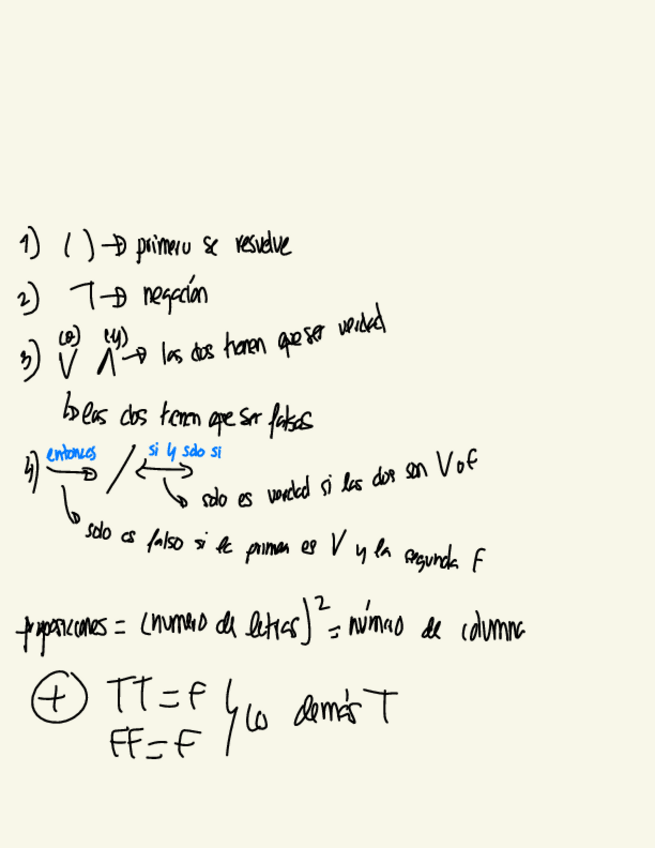 1) ( ) → primero se resuelve
2) ¬ → negación
(o) (y)
3) ∨ ∧ → las dos tienen que ser verdad
↳ las dos tienen que ser falsas
entonces si y solo si
4) → / ↔
↳ solo es verdad si las dos son V o F
↳ solo es falso si la primera es V y la segunda F
proposiciones = (numero de letras)² = número de columna
⊕ TT = F
FF = F } y lo demás T